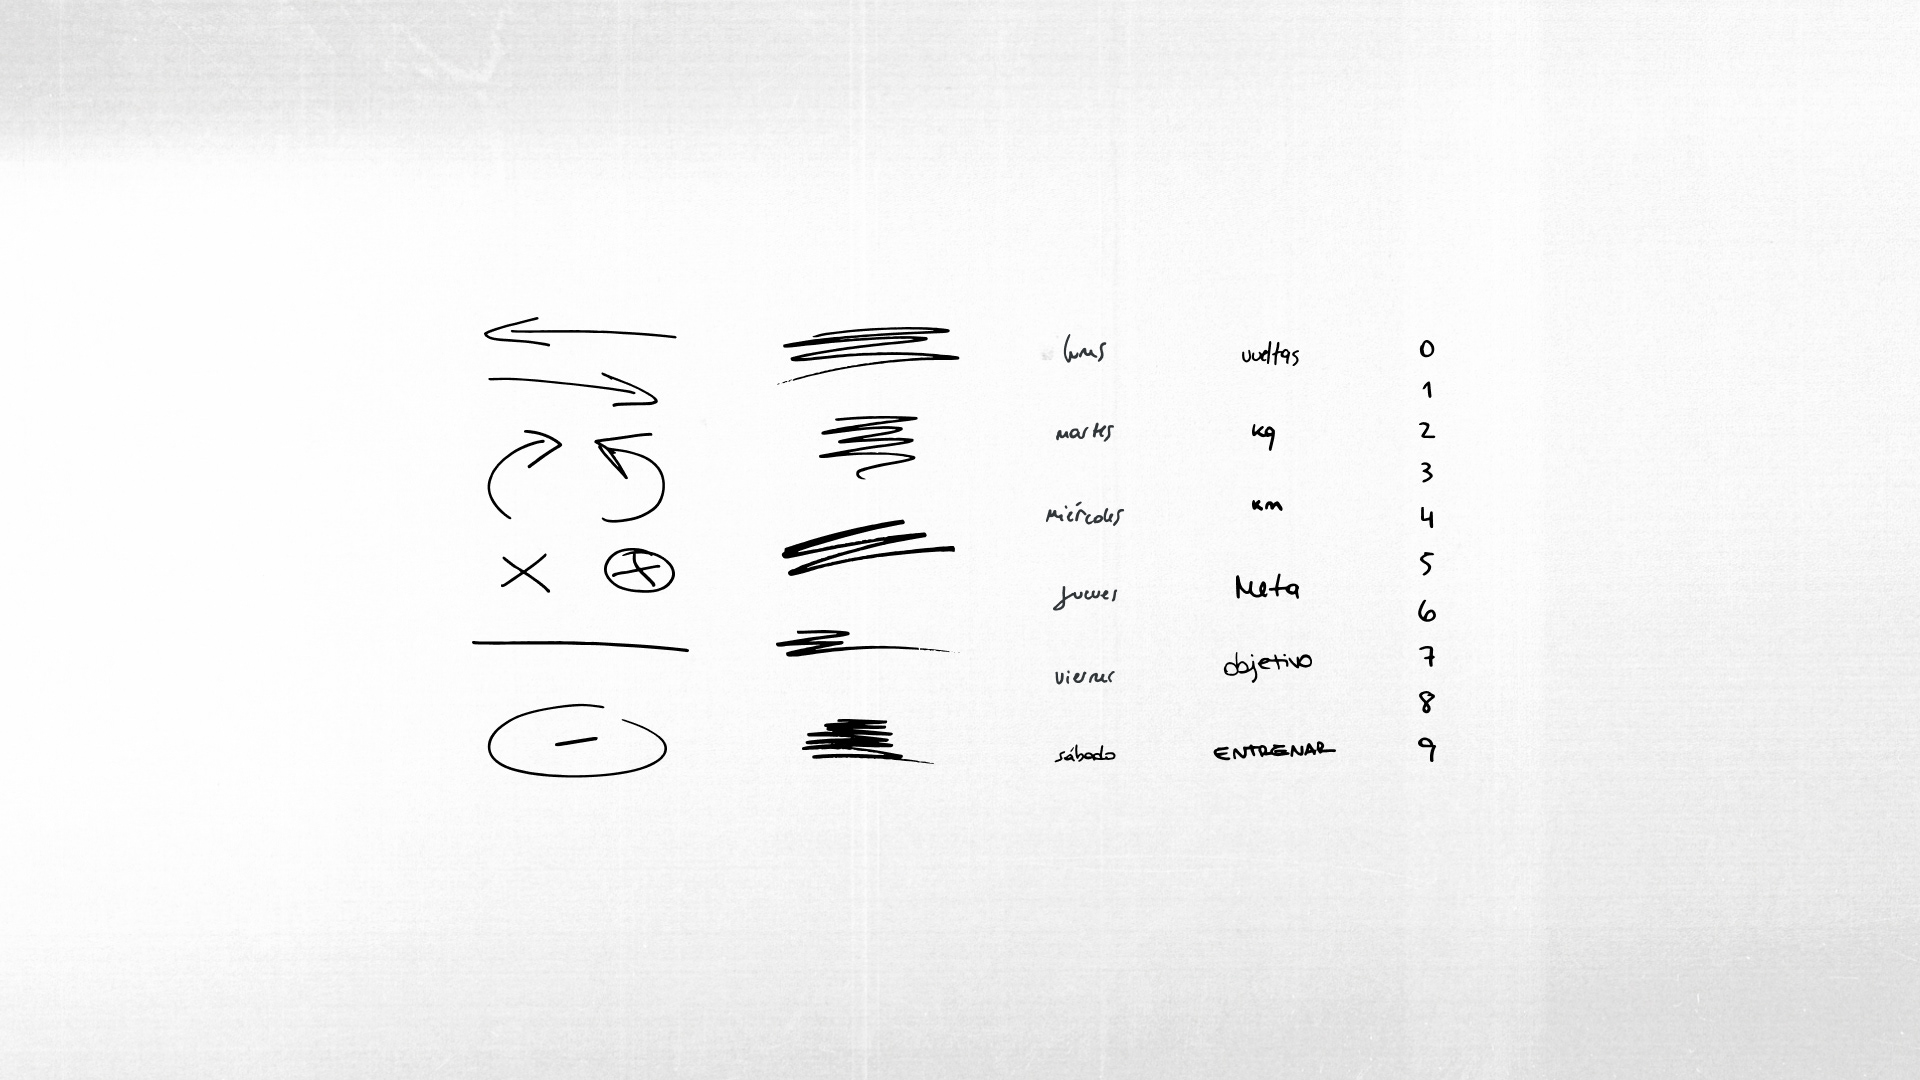 lunes
martes
miércoles
jueves
viernes
sábado
vueltas
kg
km
Meta
objetivo
ENTRENAR
0
1
2
3
4
5
6
7
8
9